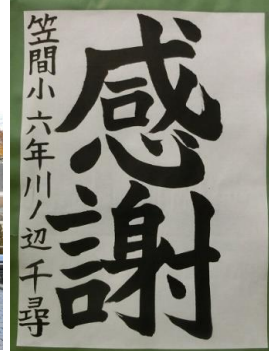 感謝
笠間小六年川ノ辺千尋